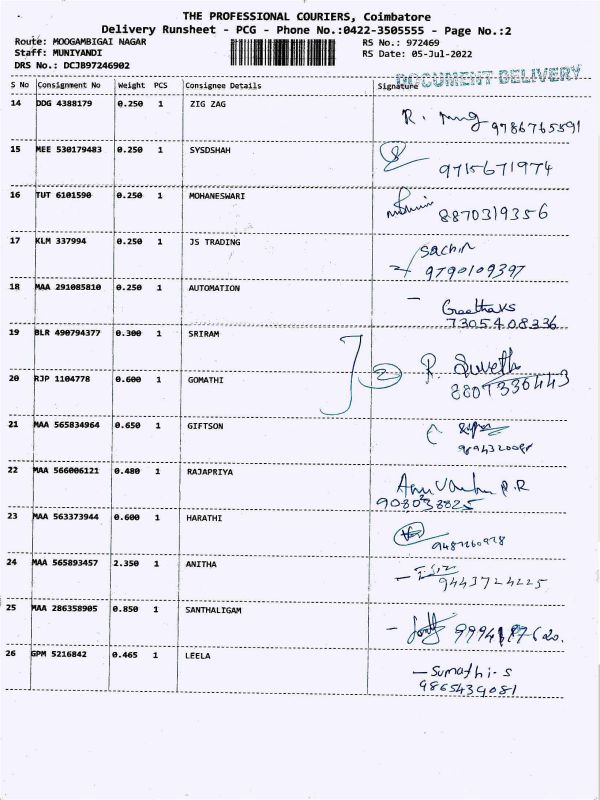 THE PROFESSIONAL COURIERS, Coimbatore
Delivery Runsheet - PCG - Phone No.:0422-3505555 - Page No.:2
Route: MOOGAMBIGAI NAGAR RS No.: 972469
Staff: MUNIYANDI RS Date: 05-Jul-2022
DRS No.: DCJB97246902
DOCUMENT DELIVERY
S No Consignment No Weight PCS Consignee Details Signature
14 DDG 4388179 0.250 1 ZIG ZAG R.
9786765591
15 MEE 530179483 0.250 1 SYSDSHAH
9715671974
16 TUT 6101590 0.250 1 MOHANESWARI 8870319356
17 KLM 337994 0.250 1 JS TRADING Sachin
9790109397
18 MAA 291085810 0.250 1 AUTOMATION - Geetha KS
7305408336
19 BLR 490794377 0.300 1 SRIRAM
2 R. Suveth
20 RJP 1104778 0.600 1 GOMATHI 8807330443
21 MAA 565834964 0.650 1 GIFTSON
22 MAA 566006121 0.480 1 RAJAPRIYA P.R
9080238825
23 MAA 563373944 0.600 1 HARATHI
9487260978
24 MAA 565893457 2.350 1 ANITHA
9443724225
25 MAA 286358905 0.850 1 SANTHALIGAM
26 GPM 5216842 0.465 1 LEELA - Sumathi-S
9865439081